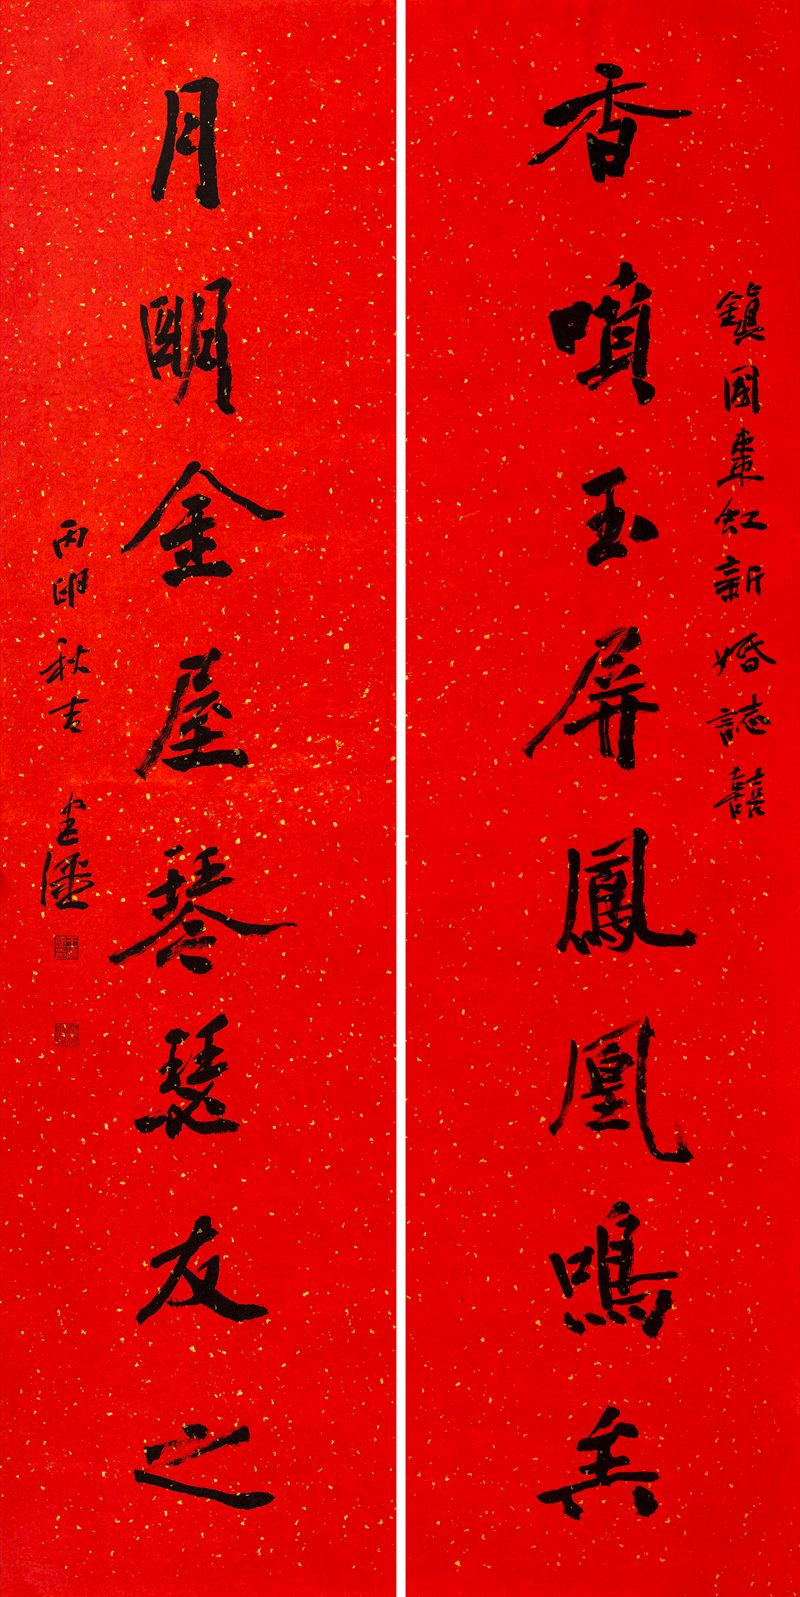 鎮國棗紅新婚誌囍
香噴玉屏鳳凰鳴矣
月明金屋琴瑟友之
丙申秋吉